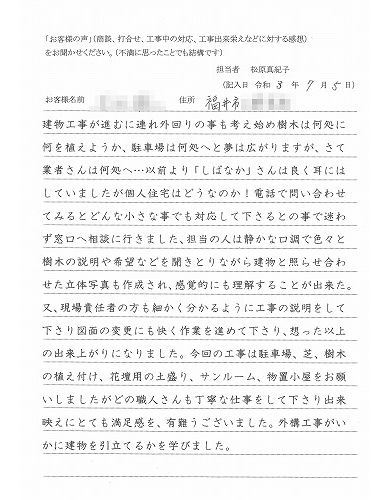 「お客様の声」(商談、打合せ、工事中の対応、工事出来栄えなどに対する感想)
をお聞かせください。(不満に思ったことでも結構です)
担当者 松原真紀子
(記入日 令和 3 年 7 月 5 日)
お客様名前 住所 福井市
建物工事が進むに連れ外回りの事も考え始め樹木は何処に
何を植えようか、駐車場は何処へと夢は広がりますが、さて
業者さんは何処へ…以前より「しばなか」さんは良く耳には
していましたが個人住宅はどうなのか！電話で問い合わせ
てみるとどんな小さな事でも対応して下さるとの事で迷わ
ず窓口へ相談に行きました、担当の人は静かな口調で色々と
樹木の説明や希望などを聞きとりながら建物と照らせ合わ
せた立体写真も作成され、感覚的にも理解することが出来た。
又、現場責任者の方も細かく分かるように工事の説明をして
下さり図面の変更にも快く作業を進めて下さり、想った以上
の出来上がりになりました。今回の工事は駐車場、芝、樹木
の植え付け、花壇用の土盛り、サンルーム、物置小屋をお願
いしましたがどの職人さんも丁寧な仕事をして下さり出来
映えにとても満足感を、有難うございました。外構工事がい
かに建物を引立てるかを学びました。